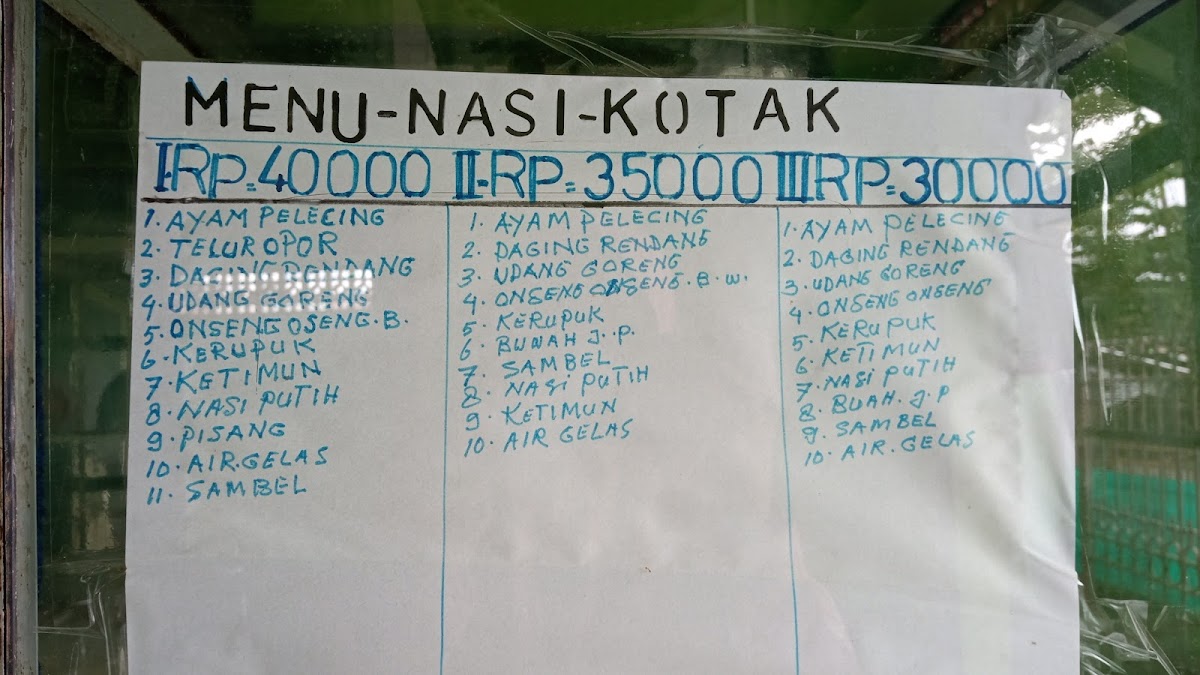 MENU-NASI-KOTAK
I-RP=40000
1. AYAM PELECING
2. TELUR OPOR
3. DAGING RENDANG
4. UDANG GORENG
5. ONSENG OSENG.B.
6. KERUPUK
7. KETIMUN
8. NASI PUTIH
9. PISANG
10. AIR.GELAS
11. SAMBEL
II-RP=35000
1. AYAM PELECING
2. DAGING RENDANG
3. UDANG GORENG
4. ONSENG ONSENG.B.W.
5. KERUPUK
6. BUWAH J.P.
7. SAMBEL
8. NASI PUTIH
9. KETIMUN
10. AIR GELAS
III RP=30000
1. AYAM PELECING
2. DAGING RENDANG
3. UDANG GORENG
4. ONSENG ONSENG
5. KERUPUK
6. KETIMUN
7. NASI PUTIH
8. BUAH. J.P
9. SAMBEL
10. AIR. GELAS